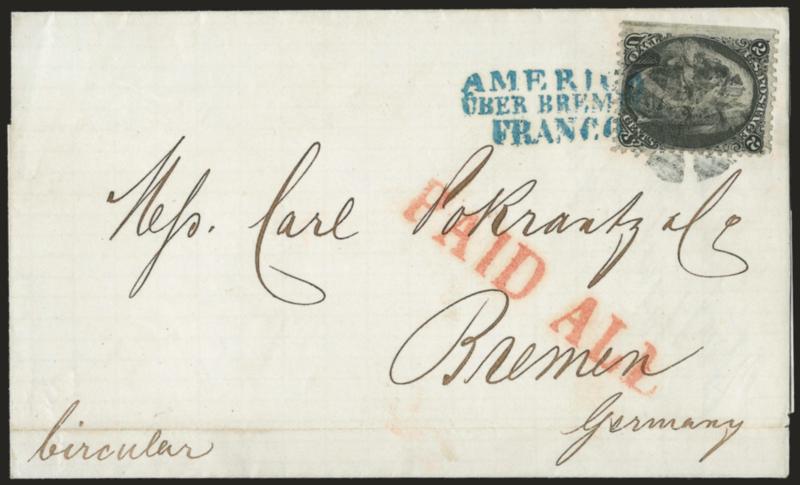 AMERICA
ÜBER BREMEN
FRANCO
U.S. POSTAGE
TWO CENTS
2 2
U
Mess. Carl Pokrantz & Co
PAID ALL
Bremen
Germany
circular